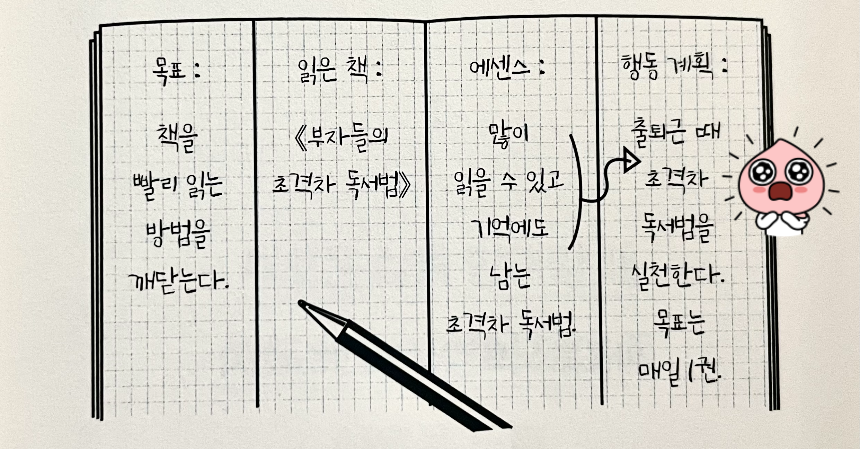 목표 :
책을
빨리 읽는
방법을
깨닫는다.
읽은 책 :
《부자들의
초격차 독서법》
에센스 :
많이
읽을 수 있고
기억에도
남는
초격차 독서법.
행동 계획 :
출퇴근 때
초격차
독서법을
실천한다.
목표는
매일 1권.